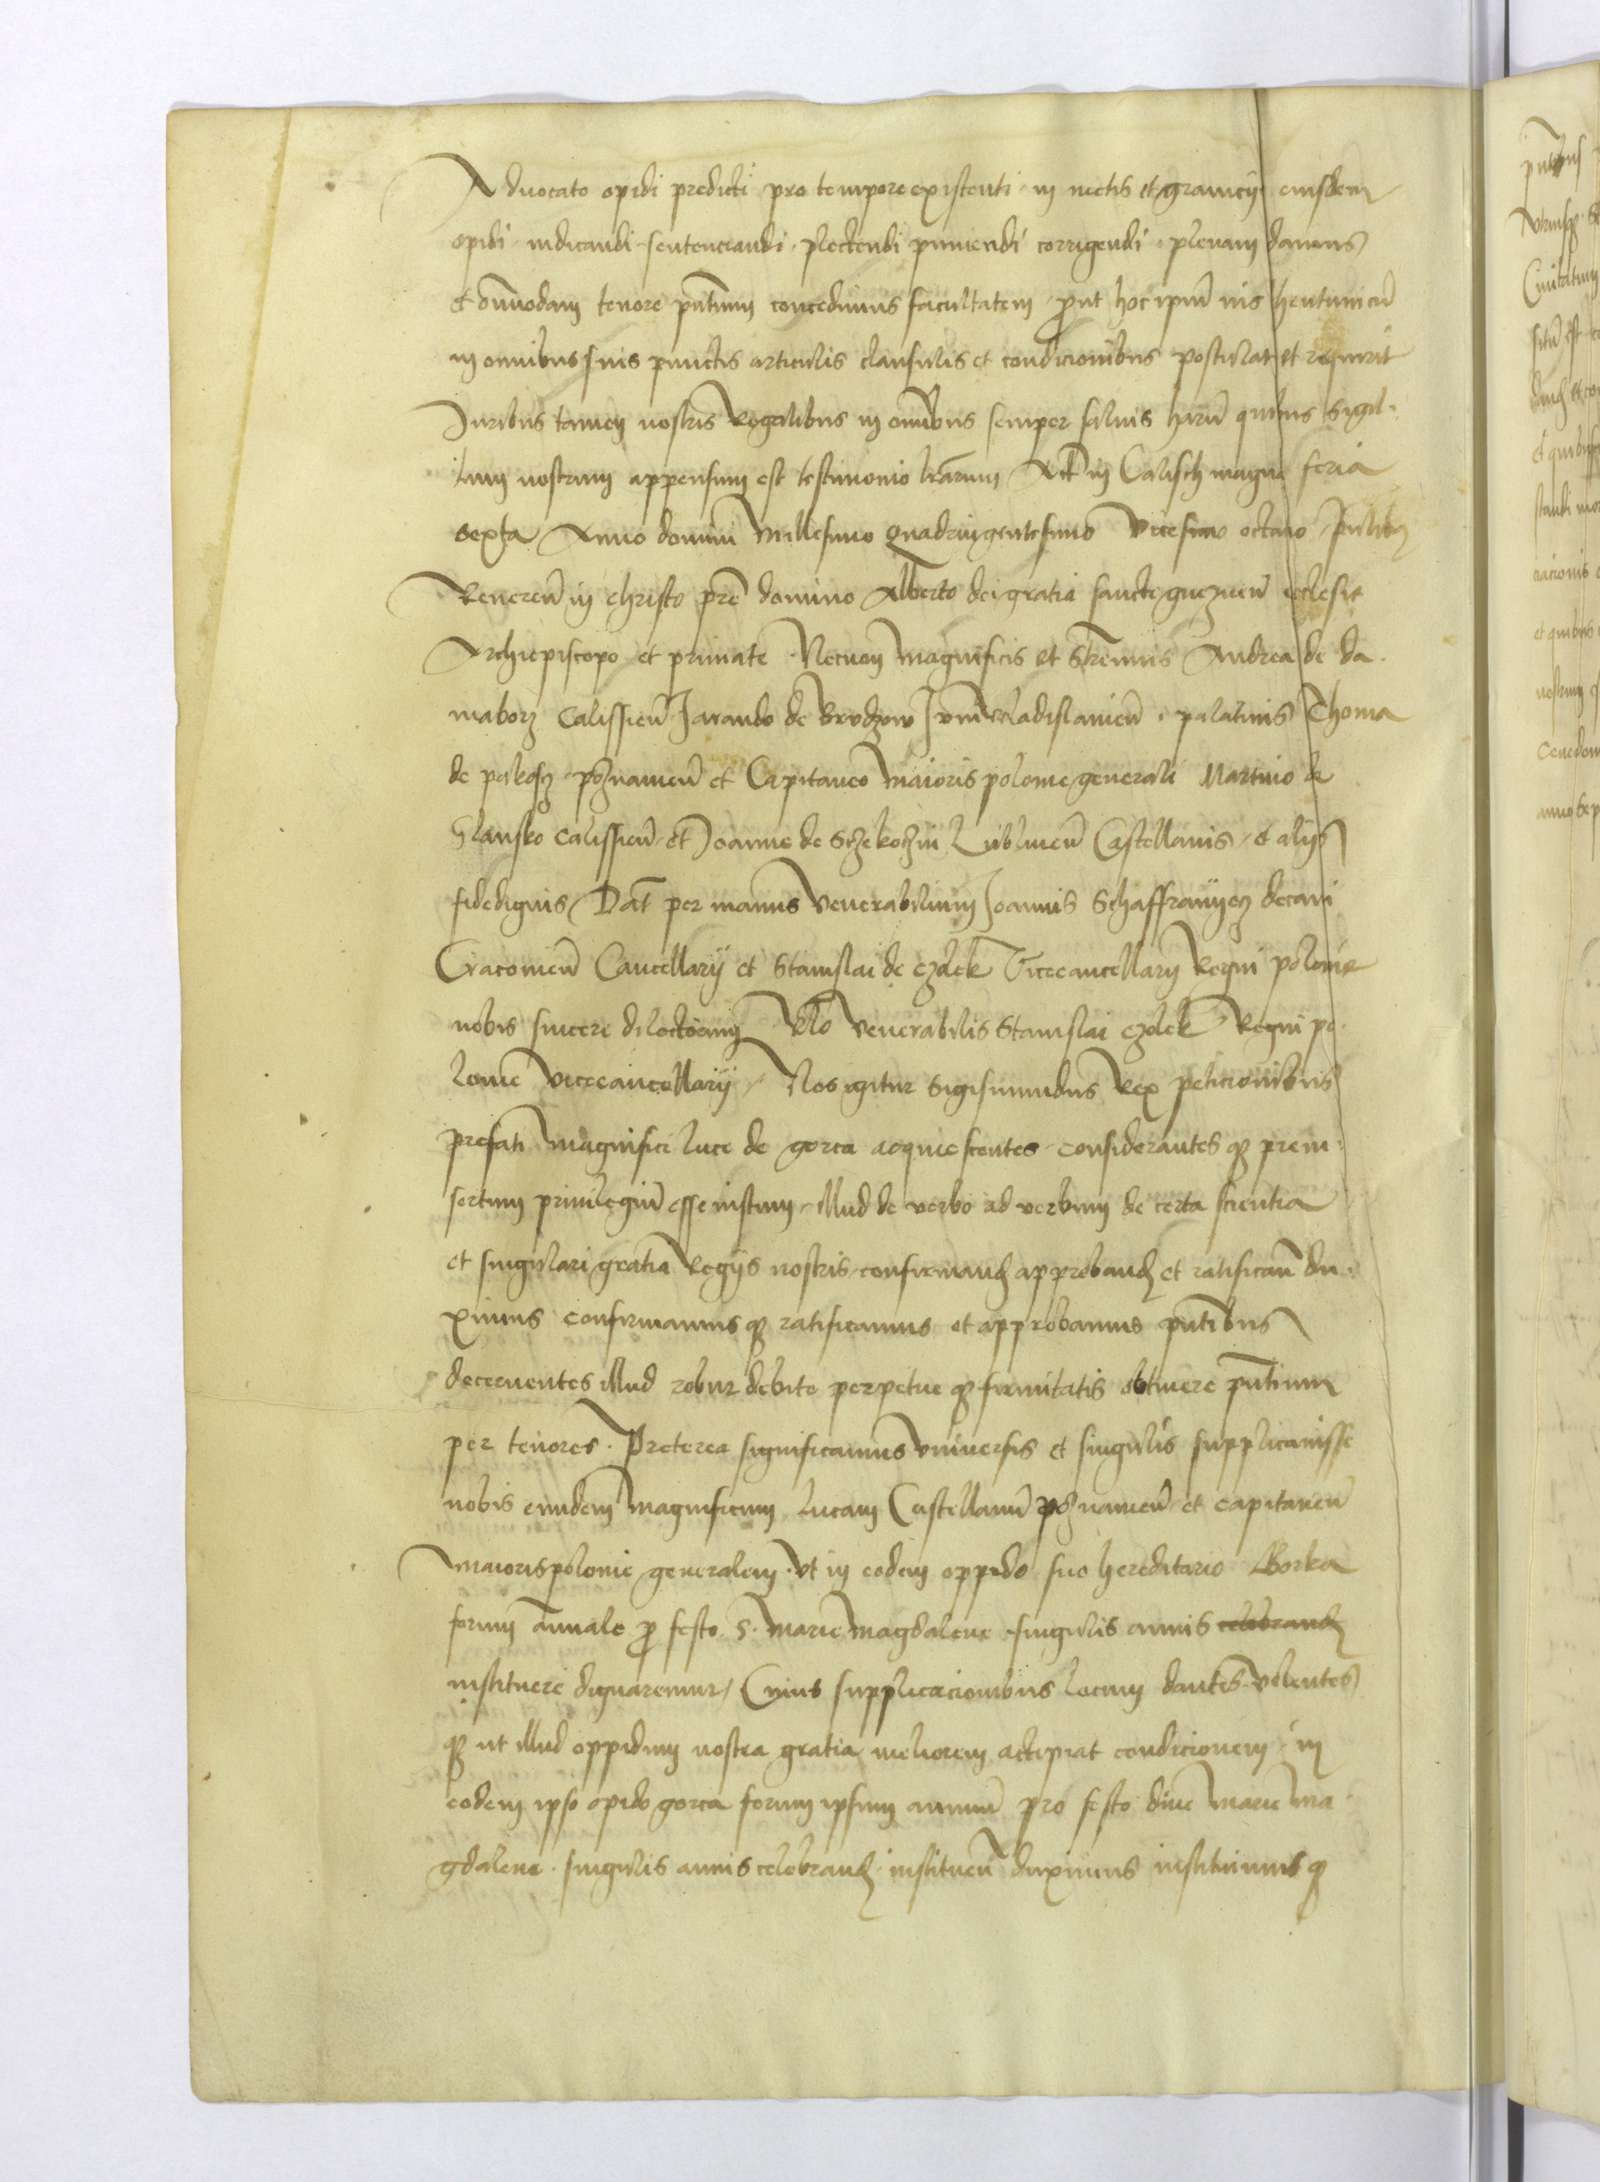 Advocato opidi predicti pro tempore existenti in metis et granicijs eiusdem
opidi iudicandi sentenciandi plectendi puniendi corrigendi plenam damus
et omnimodam tenore pntium concedimus facultatem prout hoc ipsum ius theutunicum
in omnibus suis punctis articulis clausulis et condicionibus postulat et requirit
Iuribus tamen nostris Regalibus in omnibus semper saluis harum quibus Sigil-
lum nostrum appensum est testimonio lrarum Act in Calisch magna feria
sexta Anno domini Millesimo quadringentesimo Vicesimo octauo
Reueren in christo pre domino Alberto dei gratia sancte gneznen ecclesie
Archiepiscopo et primate Necnon Magnificis et Strenuis Andrea de da-
naborz Calissien Jarando de Brudzow Iuniuladislauien palatinis Thoma
de pakosz poznanien et Capitaneo Maioris polonie generali Martino de
Slausko calissien et Joanne de Sczekoczin Lublinen Castellanis et alijs
fidedignis Dat per manus Venerabilium Joannis Schaffranyecz decani
Cracouien Cancellarij et Stanislai de czolek Vicecancellarij Regni polonie
nobis sincere dilectorum Rlo Venerabilis Stanislai czolek Regni po-
lonie Vicecancellarij Nos igitur Sigismundus Rex peticionibus
prefati Magnifici luce de gorca acquiescentes considerantes q prein-
sertum priuilegium esse iustum illud de verbo ad verbum de certa scientia
et singulari gratia Regijs nostris confirmand approband et ratifican du-
ximus confirmamus q ratificamus et approbamus pntibus
decernentes illud robur debite perpetue q firmitatis obtinere pntium
per tenores Preterea significamus Vniuersis et singulis supplicauisse
nobis eundem Magnificum lucam Castellanum poznanien et capitaneum
Maiorispolonie generalem Vt in eodem oppido suo hereditario Gorka
forum annale pro festo S. Marie Magdalene singulis annis celebrand
instituere dignaremur Cuius supplicacionibus locum dantes Volentes
q ut illud oppidum nostra gratia meliorem accipiat condicionem in
eodem ipso opido gorca forum ipsum annuum pro festo diue Marie Ma-
gdalene singulis annis celebrand instituen duximus instituimus q